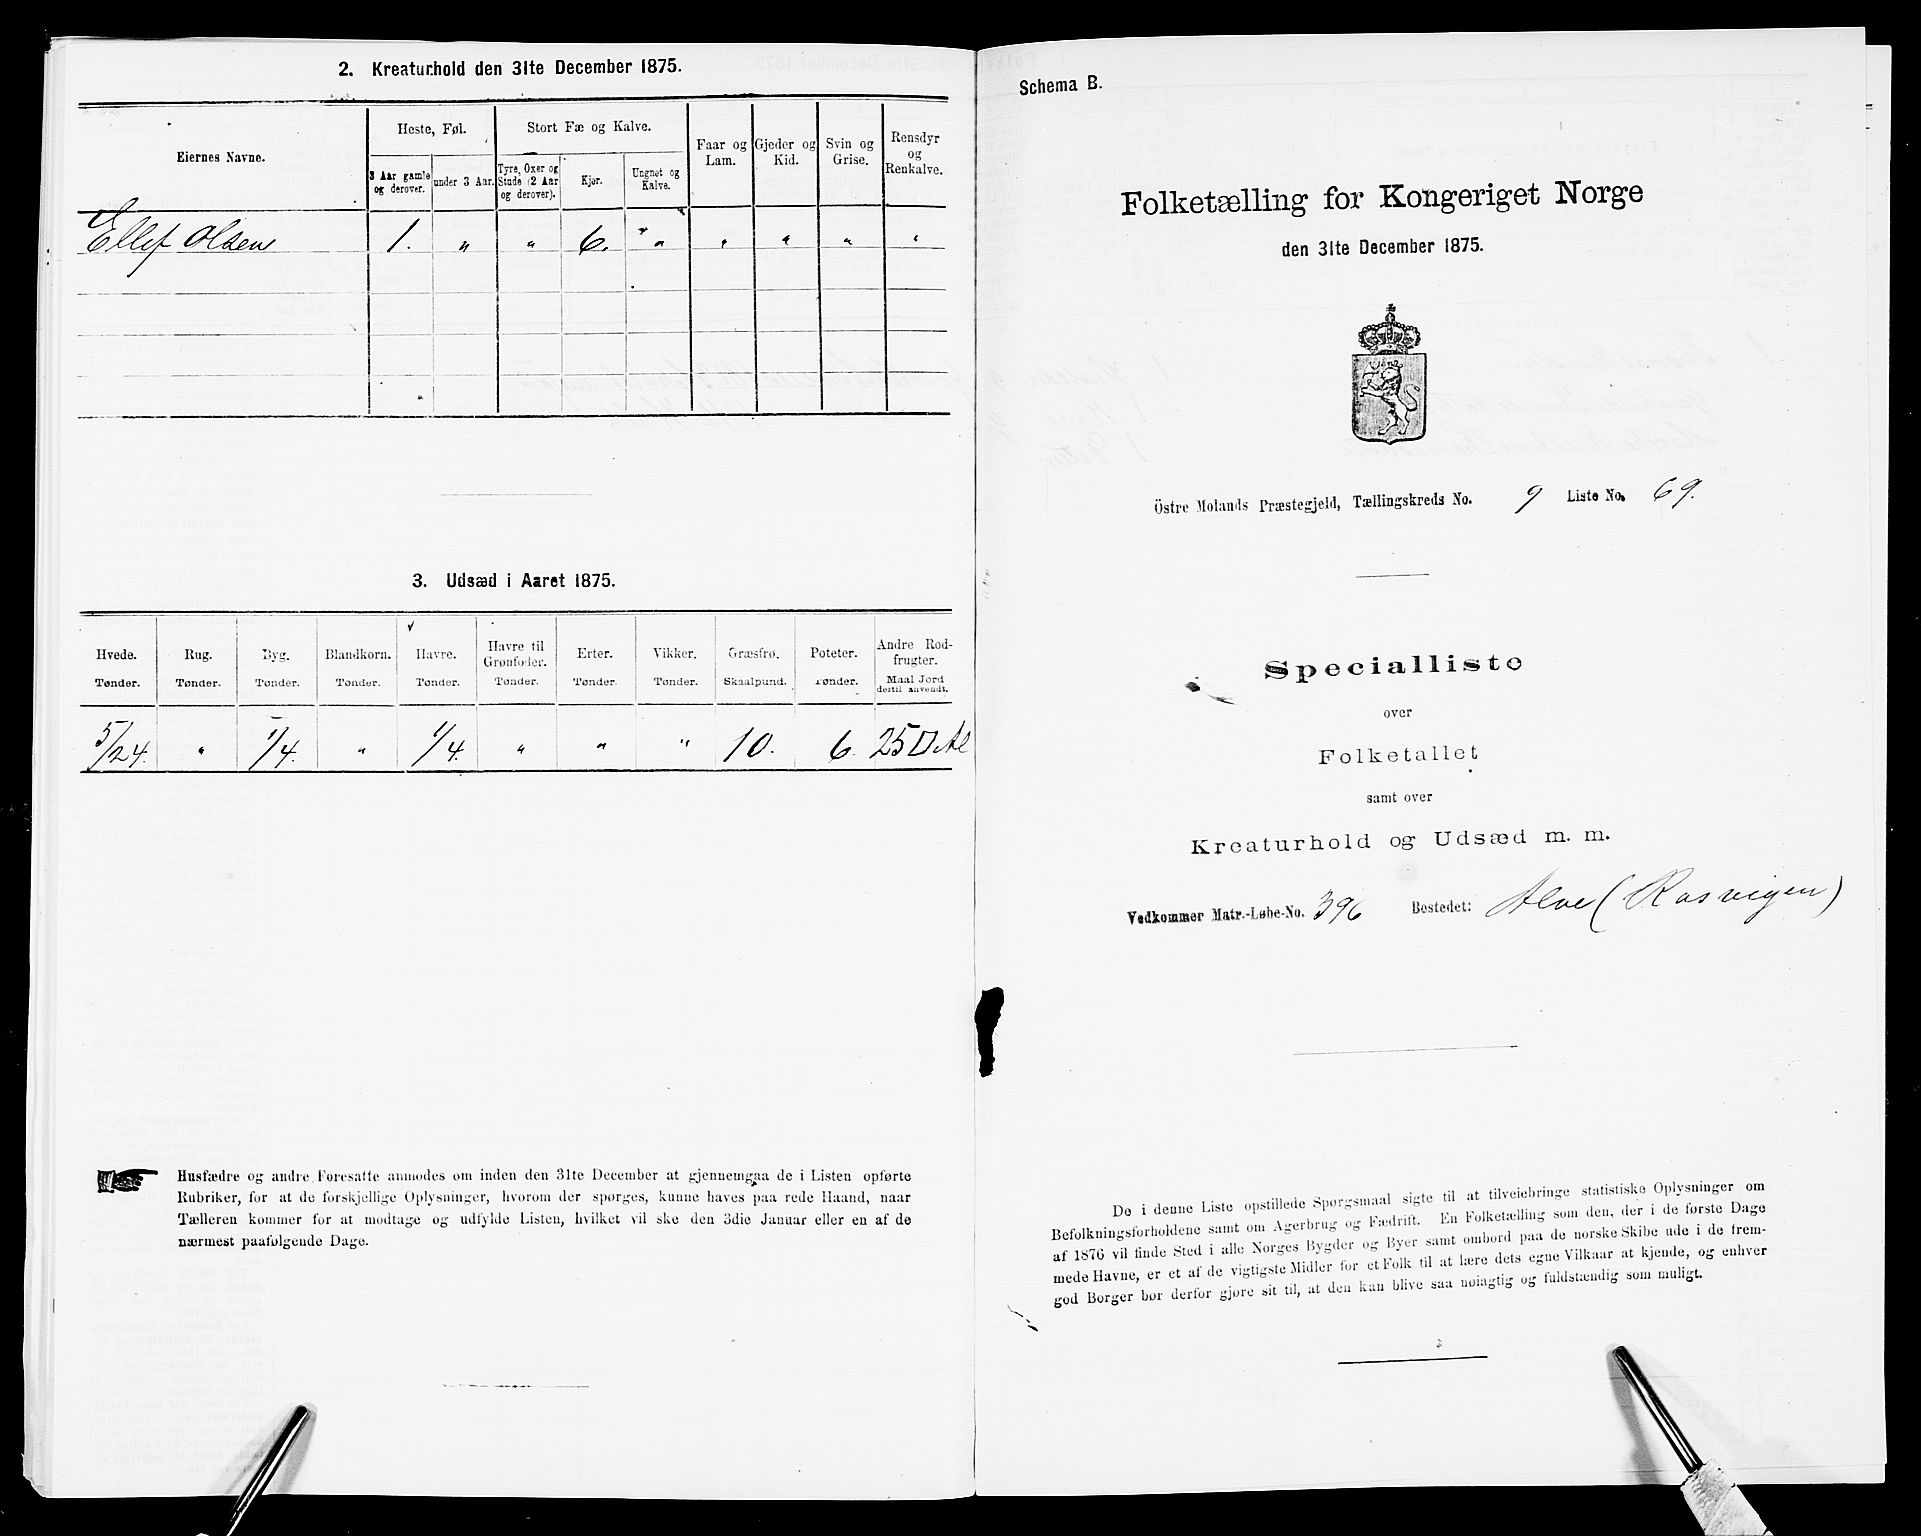 2. Kreaturhold den 31te December 1875.
Eiernes Navne.
Heste, Føl.
3 Aar gamle og derover.
under 3 Aar.
Stort Fæ og Kalve.
Tyre, Oxer og Stude (2 Aar og derover).
Kjør.
Ungnet og Kalve.
Faar og Lam.
Gjeder og Kid.
Svin og Grise.
Rensdyr og Renkalve.
Ellef Olsen 1. " " 6. " " " " "
3. Udsæd i Aaret 1875.
Hvede. Rug. Byg. Blandkorn. Havre. Havre til Grønfoder. Erter. Vikker. Græsfrø. Poteter. Andre Rodfrugter.
Tønder. Tønder. Tønder. Tønder. Tønder. Tønder. Tønder. Tønder. Skaalpund. Tønder. Maal Jord dertil anvendt.
5/24. " 1/4. " 1/4. " " " 10. 6. 25 □ Al
Husfædre og andre Foresatte anmodes om inden den 31te December at gjennemgaa de i Listen opførte
Rubriker, for at de forskjellige Oplysninger, hvorom der spørges, kunne haves paa rede Haand, naar
Tælleren kommer for at modtage og udfylde Listen, hvilket vil ske den 3die Januar eller en af de
nærmest paafølgende Dage.
Schema B.
Folketælling for Kongeriget Norge
den 31te December 1875.
Östre Molands Præstegjeld, Tællingskreds No. 9 Liste No. 69.
Specialliste
over
Folketallet
samt over
Kreaturhold og Udsæd m. m.
Vedkommer Matr.-Løbe-No. 396 Bostedet: Alve (Rosvigen)
De i denne Liste opstillede Spørgsmaal sigte til at tilveiebringe statistiske Oplysninger om
Befolkningsforholdene samt om Agerbrug og Fædrift. En Folketælling som den, der i de første Dage
af 1876 vil finde Sted i alle Norges Bygder og Byer samt ombord paa de norske Skibe ude i de frem-
mede Havne, er et af de vigtigste Midler for et Folk til at lære dets egne Vilkaar at kjende, og enhver
god Borger bør derfor gjøre sit til, at den kan blive saa nøiagtig og fuldstændig som muligt.